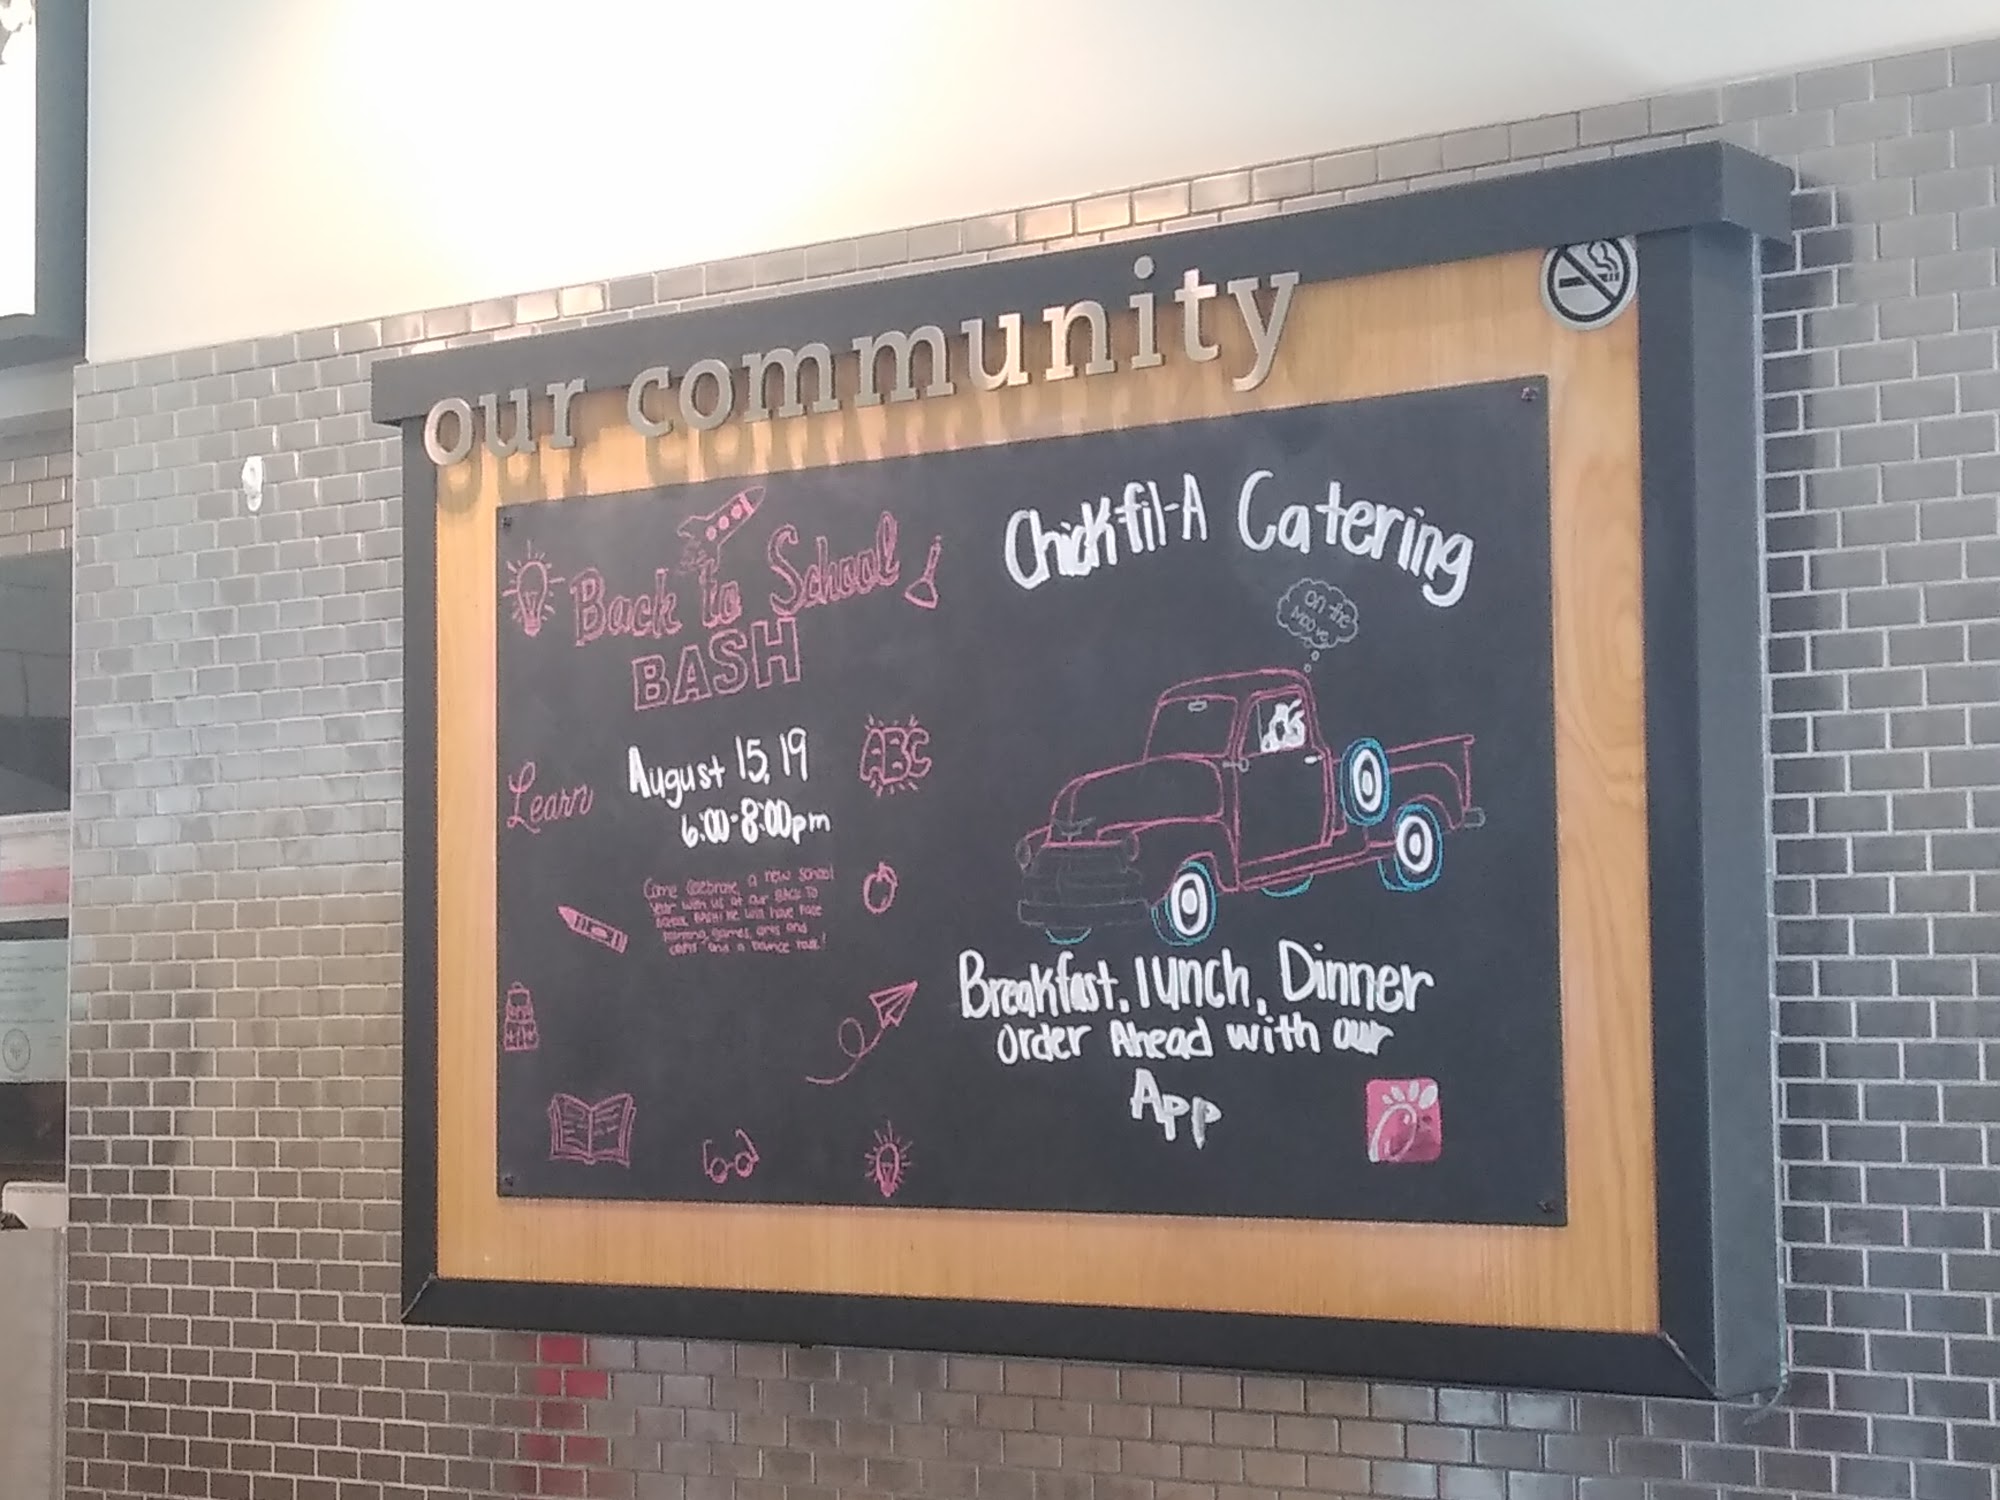 our community
Back to School
BASH
August 15, 19
6:00-8:00pm
Learn
ABC
Come Celebrate, a new school
Year with us at our BACK TO
SCHOOL BASH! We will have face
painting, games, arts and
crafts and a bounce house!
Chick-fil-A Catering
on the
Moove
Breakfast, lunch, Dinner
Order Ahead with our
App